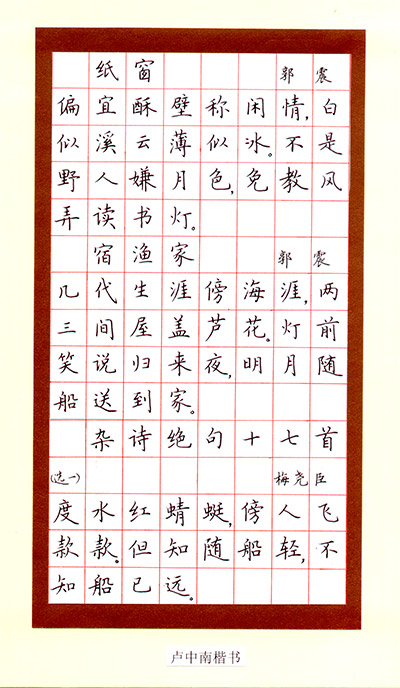 纸窗 郭震
偏宜酥壁称闲情,白
似溪云薄似冰。不是
野人嫌月色,免教风
弄读书灯。
宿渔家 郭震
几代生涯傍海涯,两
三间屋盖芦花。灯前
笑说归来夜,明月随
船送到家。
杂诗绝句十七首
(选一) 梅尧臣
度水红蜻蜓,傍人飞
款款。但知随船轻,不
知船已远。
卢中南楷书